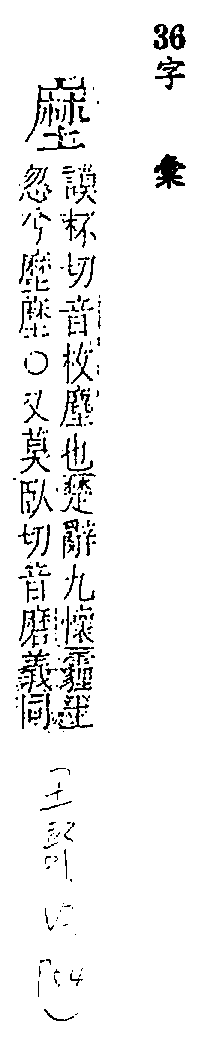 36
字彙
塺
謨杯切音枚塵也楚辭九懷霾土
忽兮塺塺〇又莫臥切音磨義同